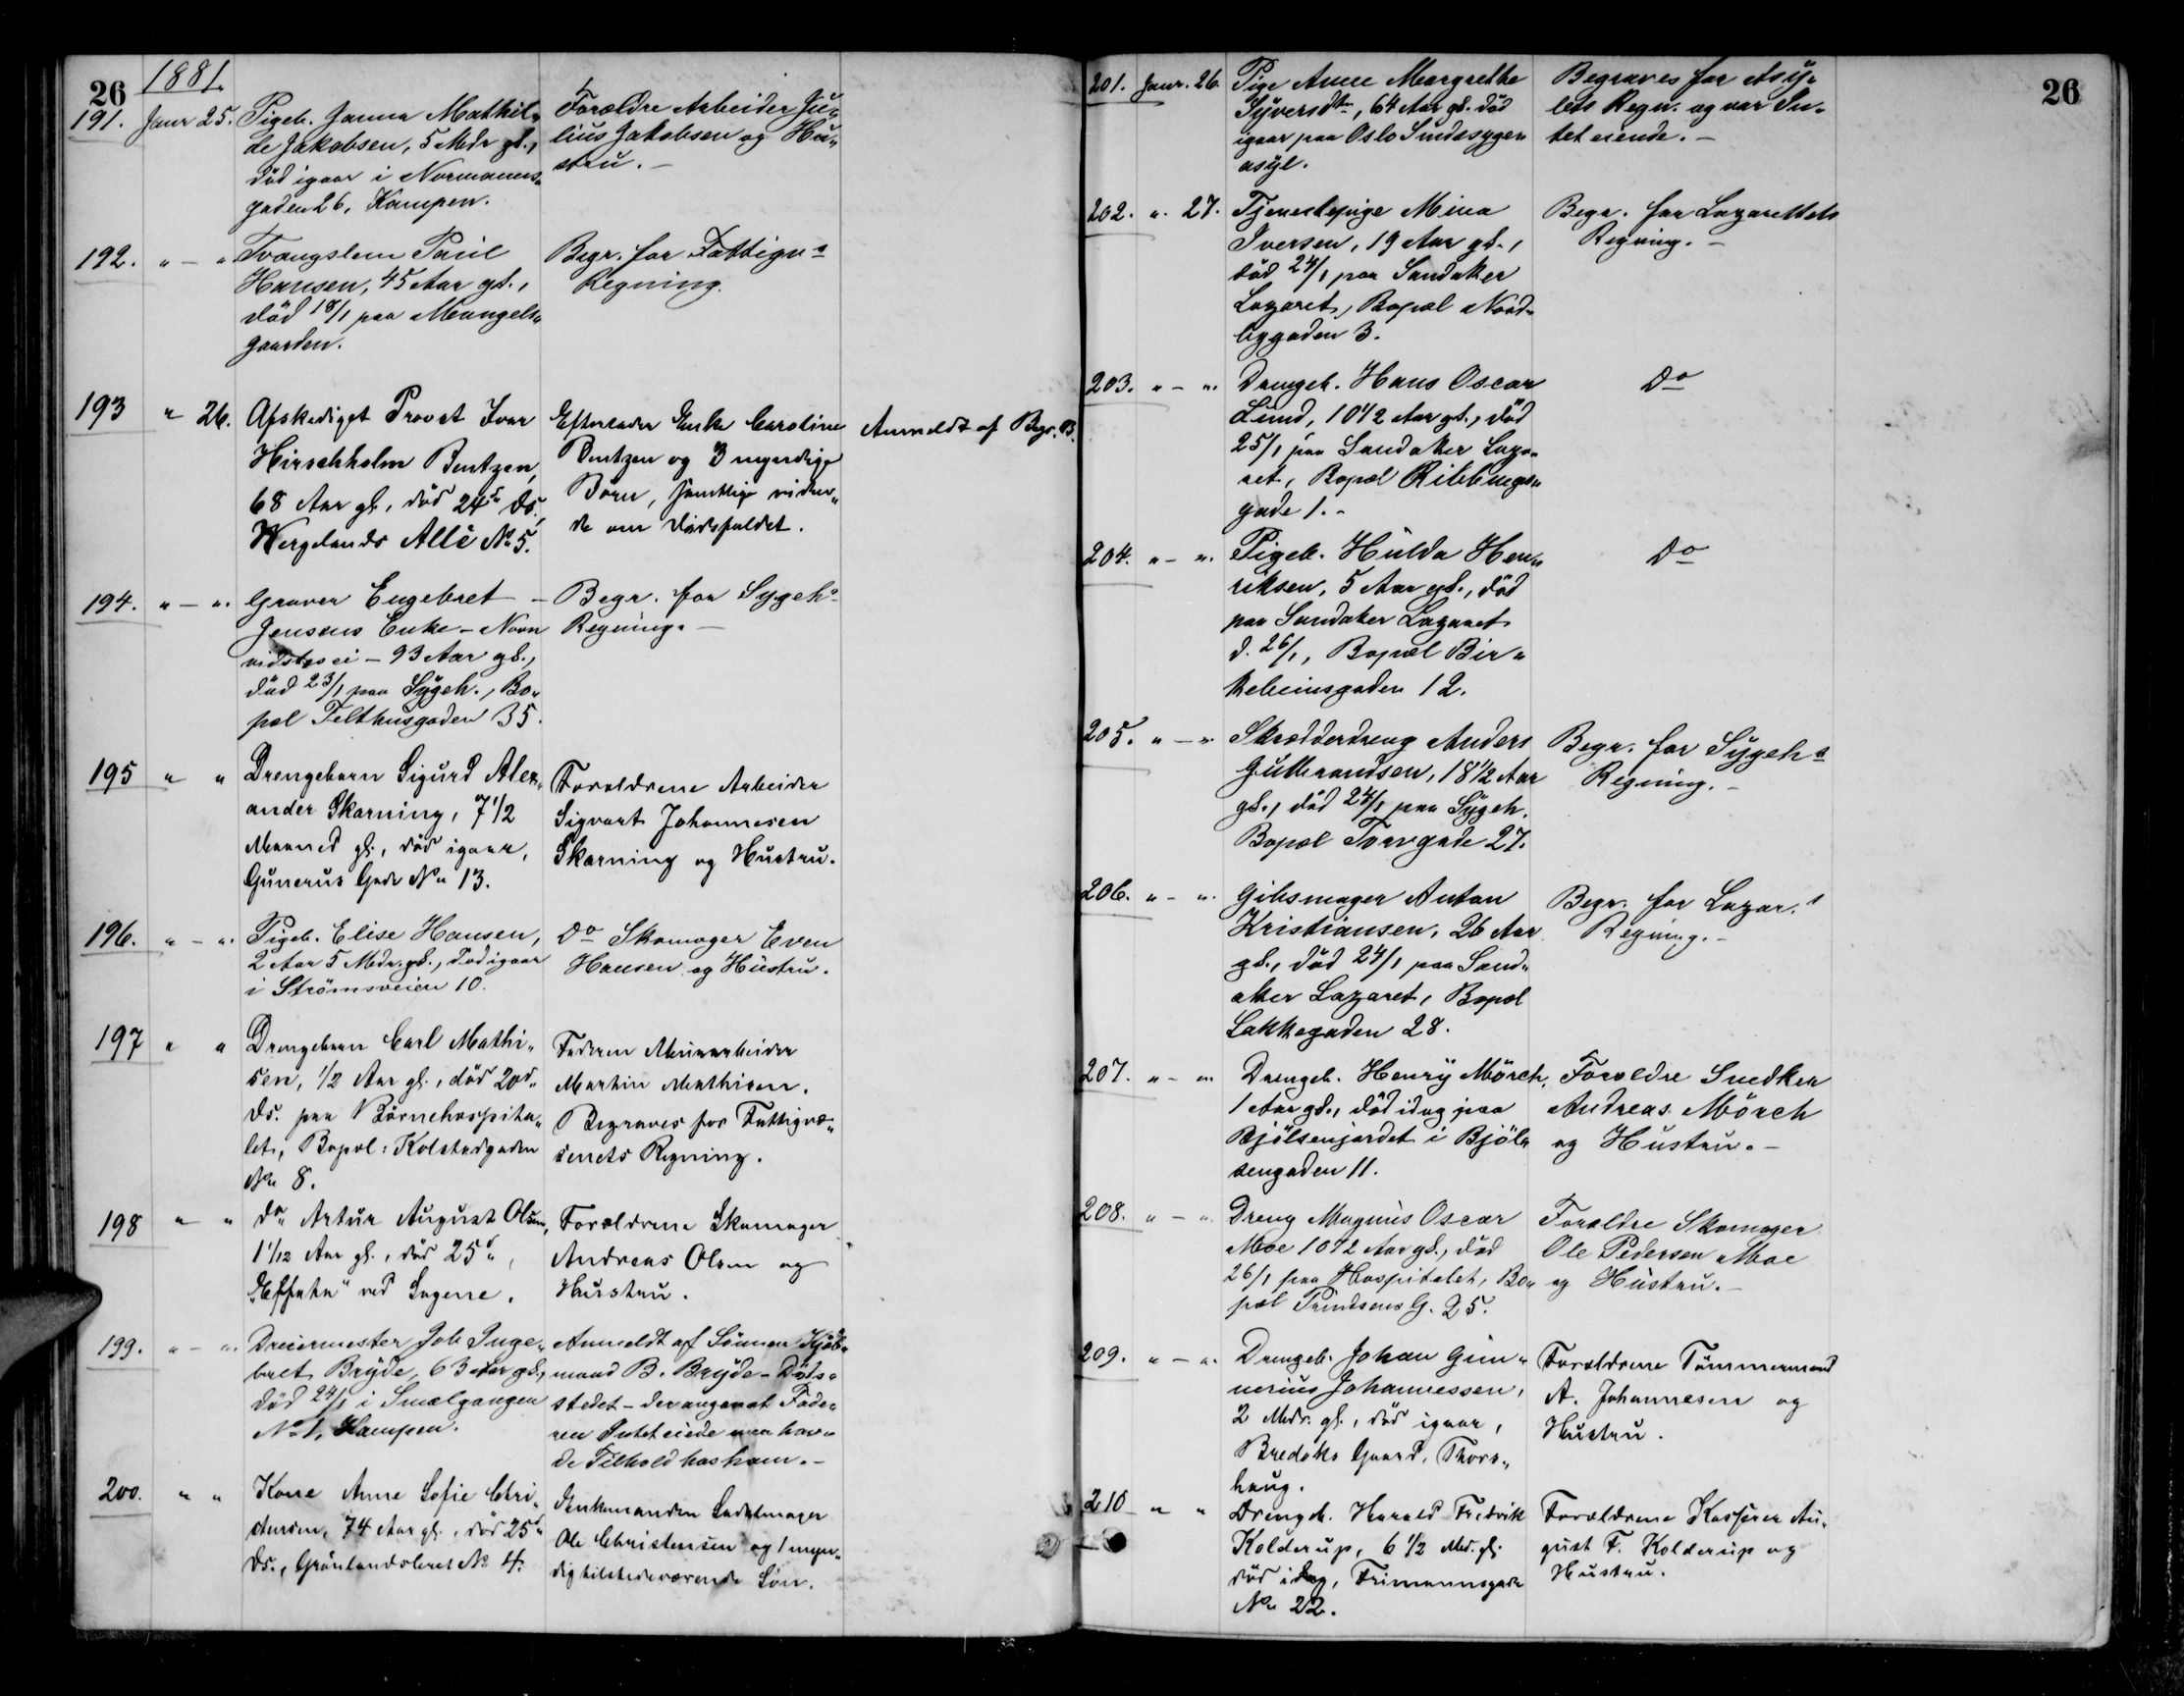 26
1881.
191. Janr 25. Pigeb. Janna Mathil-
de Jakobsen, 5 Mdr gl.,
död igaar i Normanns-
gaden 26, Kampen.
Forældre Arbeider Ju-
lius Jakobsen og Hu-
stru. –
192. " – " Tvangslem Paul
Hansen, 45 Aar gl.,
död 18/1 paa Mangels-
gaarden.
Begr. for Fattigvs
Regning.
193 " 26. Afskediget Provst Ivar
Hirschholm Bentzen,
68 Aar gl., död 24de ds.,
Wergelands Allé No 5.
Efterlader Enke Caroline
Bentzen og 3 myndige
Börn, samtlige viden-
de om Dödsfaldet.
Anmeldt af Begr. B.
194. " – ". Graver Engebret
Jensens Enke – Navn
vidstes ei – 93 Aar gl.,
död 23/1 paa Sygeh., Bo-
pæl Felthusgaden 35.
– Begr. for Sygehs
Regning. –
195 " " Drengebarn Sigurd Alex-
ander Skarning, 7 1/2
Maaned gl., död igaar,
Gunerus Gade No 13.
Forældrene Arbeider
Sigvart Johannesen
Skarning og Hustru.
196. " – ". Pigeb. Elise Hansen,
2 Aar 5 Mdr. gl., död igaar
i Strömsveien 10.
Do Skomager Even
Hansen og Hustru.
197 " " Drengebarn Carl Mathi-
sen, 1/2 Aar gl., död 20de
ds. paa Börnehospita-
let, Bopæl: Kolstadgaden
No 8.
Faderen Murarbeider
Martin Mathisen.
Begraves for Fattigvæ-
senets Regning.
198 " " do Artur August Olsen,
1 1/12 Aar gl., död 25de,
"Effata" ved Sagene.
Forældrene Skomager
Andreas Olsen og
Hustru.
199. " – ". Dreiermester Job Inge-
bret Bryde, 63 Aar gl.,
död 24/1 i Smalgangen
No 1, Kampen.
Anmeldt af Sönnen Kjöb-
mand B. Bryde – Döds-
stedet – der angav at Fade-
ren Intet eiede men hav-
de Tilhold hos ham. –
200. " " Kone Anne Sofie Chri-
stensen, 74 Aar gl., död 25de
ds., Grönlandsleret No 4.
Enkemanden Sadelmager
Ole Christensen og 1 myn-
dig tilstedeværende Sön.
26
201. Janr. 26. Pige Anne Margrethe
Syversdtr, 64 Aar gl. död
igaar paa Oslo Sindssyge-
asyl.
Begraves for Asy-
lets Regn. og var In-
tet eiende. –
202. " 27. Tjenestepige Mina
Iversen, 19 Aar gl.,
död 24/1 paa Sandaker
Lazaret, Bopæl Nord-
bygaden 3.
Begr. for Lazarettets
Regning. –
203. " – ". Drengeb. Hans Oscar
Lund, 10 1/2 Aar gl., död
25/1 paa Sandaker Laza-
ret, Bopæl Ribbungs-
gade 1. –
Do
204. " – ". Pigeb. Hulda Hen-
riksen, 5 Aar gl., död
paa Sandaker Lazaret
d. 26/1, Bopæl Bir-
kebeinsgaden 12.
Do
205. " – ". Skrædderdreng Anders
Gulbrandsen, 18 1/2 Aar
gl., död 24/1 paa Sygeh.
Bopæl Torvgade 27.
Begr. for Sygehs
Regning. –
206. " – ". Gibsmager Anton
Kristiansen, 26 Aar
gl., död 24/1 paa Sand-
aker Lazaret, Bopæl
Lakkegaden 28.
Begr. for Lazar.s
Regning. –
207. " – " Drengeb. Henry Mörch,
1 Aar gl., död idag paa
Bjölsenjordet i Bjöl-
sengaden 11.
Forældre Snedker
Andreas Mörch
og Hustru. –
208. " – " Dreng Magnus Oscar
Moe 10 1/2 Aar gl., död
26/1 paa Hospitalet, Bo-
pæl Trondhjems G. 25.
Forældre Skomager
Ole Pedersen Moe
og Hustru. –
209. " – ". Drengeb. Johan Gun-
nerius Johannessen,
2 Mdr. gl., död igaar,
Bredeks Gaard, Thors-
haug.
Forældrene Tömmermand
A. Johannesen og
Hustru.
210 " " Drengeb. Harald Fredrik
Kolderup, 6 1/2 Md. gl.
död idag, Frimannsgade
No 22.
Forældrene Kasserer Au-
gust F. Kolderup og
Hustru.